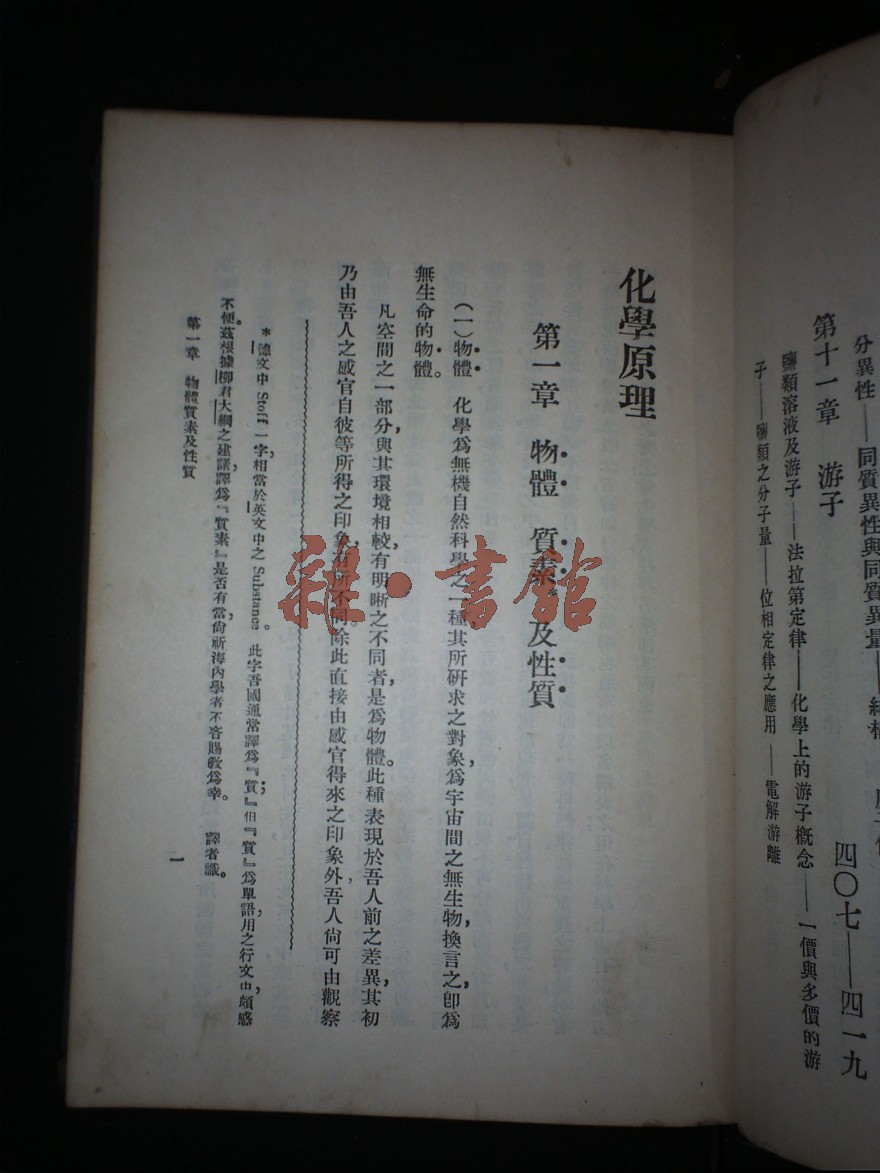 分異性——同質異性與同質異量——
第十一章　游子　四〇七——四一九
鹽類溶液及游子——法拉第定律——化學上的游子概念——一價與多價的游
子——鹽類之分子量——位相定律之應用——電解游離
化學原理
第一章　物體　質素*及性質
（一）物體　化學爲無機自然科學之一種，其所研求之對象，爲宇宙間之無生物，換言之，卽爲
無生命的物體。
凡空間之一部分，與其環境相較，有明晰之不同者，是爲物體。此種表現於吾人前之差異，其初
乃由吾人之感官自彼等所得之印象，有所不同。除此直接由感官得來之印象外，吾人尙可由觀察
*德文中 Stoff 一字，相當於英文中之 Substance。此字吾國通常譯爲『質』；但『質』爲單語，用之行文中，頗感
不便。茲根據柳君大綱之建議，譯爲『質素』，是否有當，尙祈海內學者不吝賜敎爲幸。　譯者識。
第一章　物體質素及性質
一
雜·書館